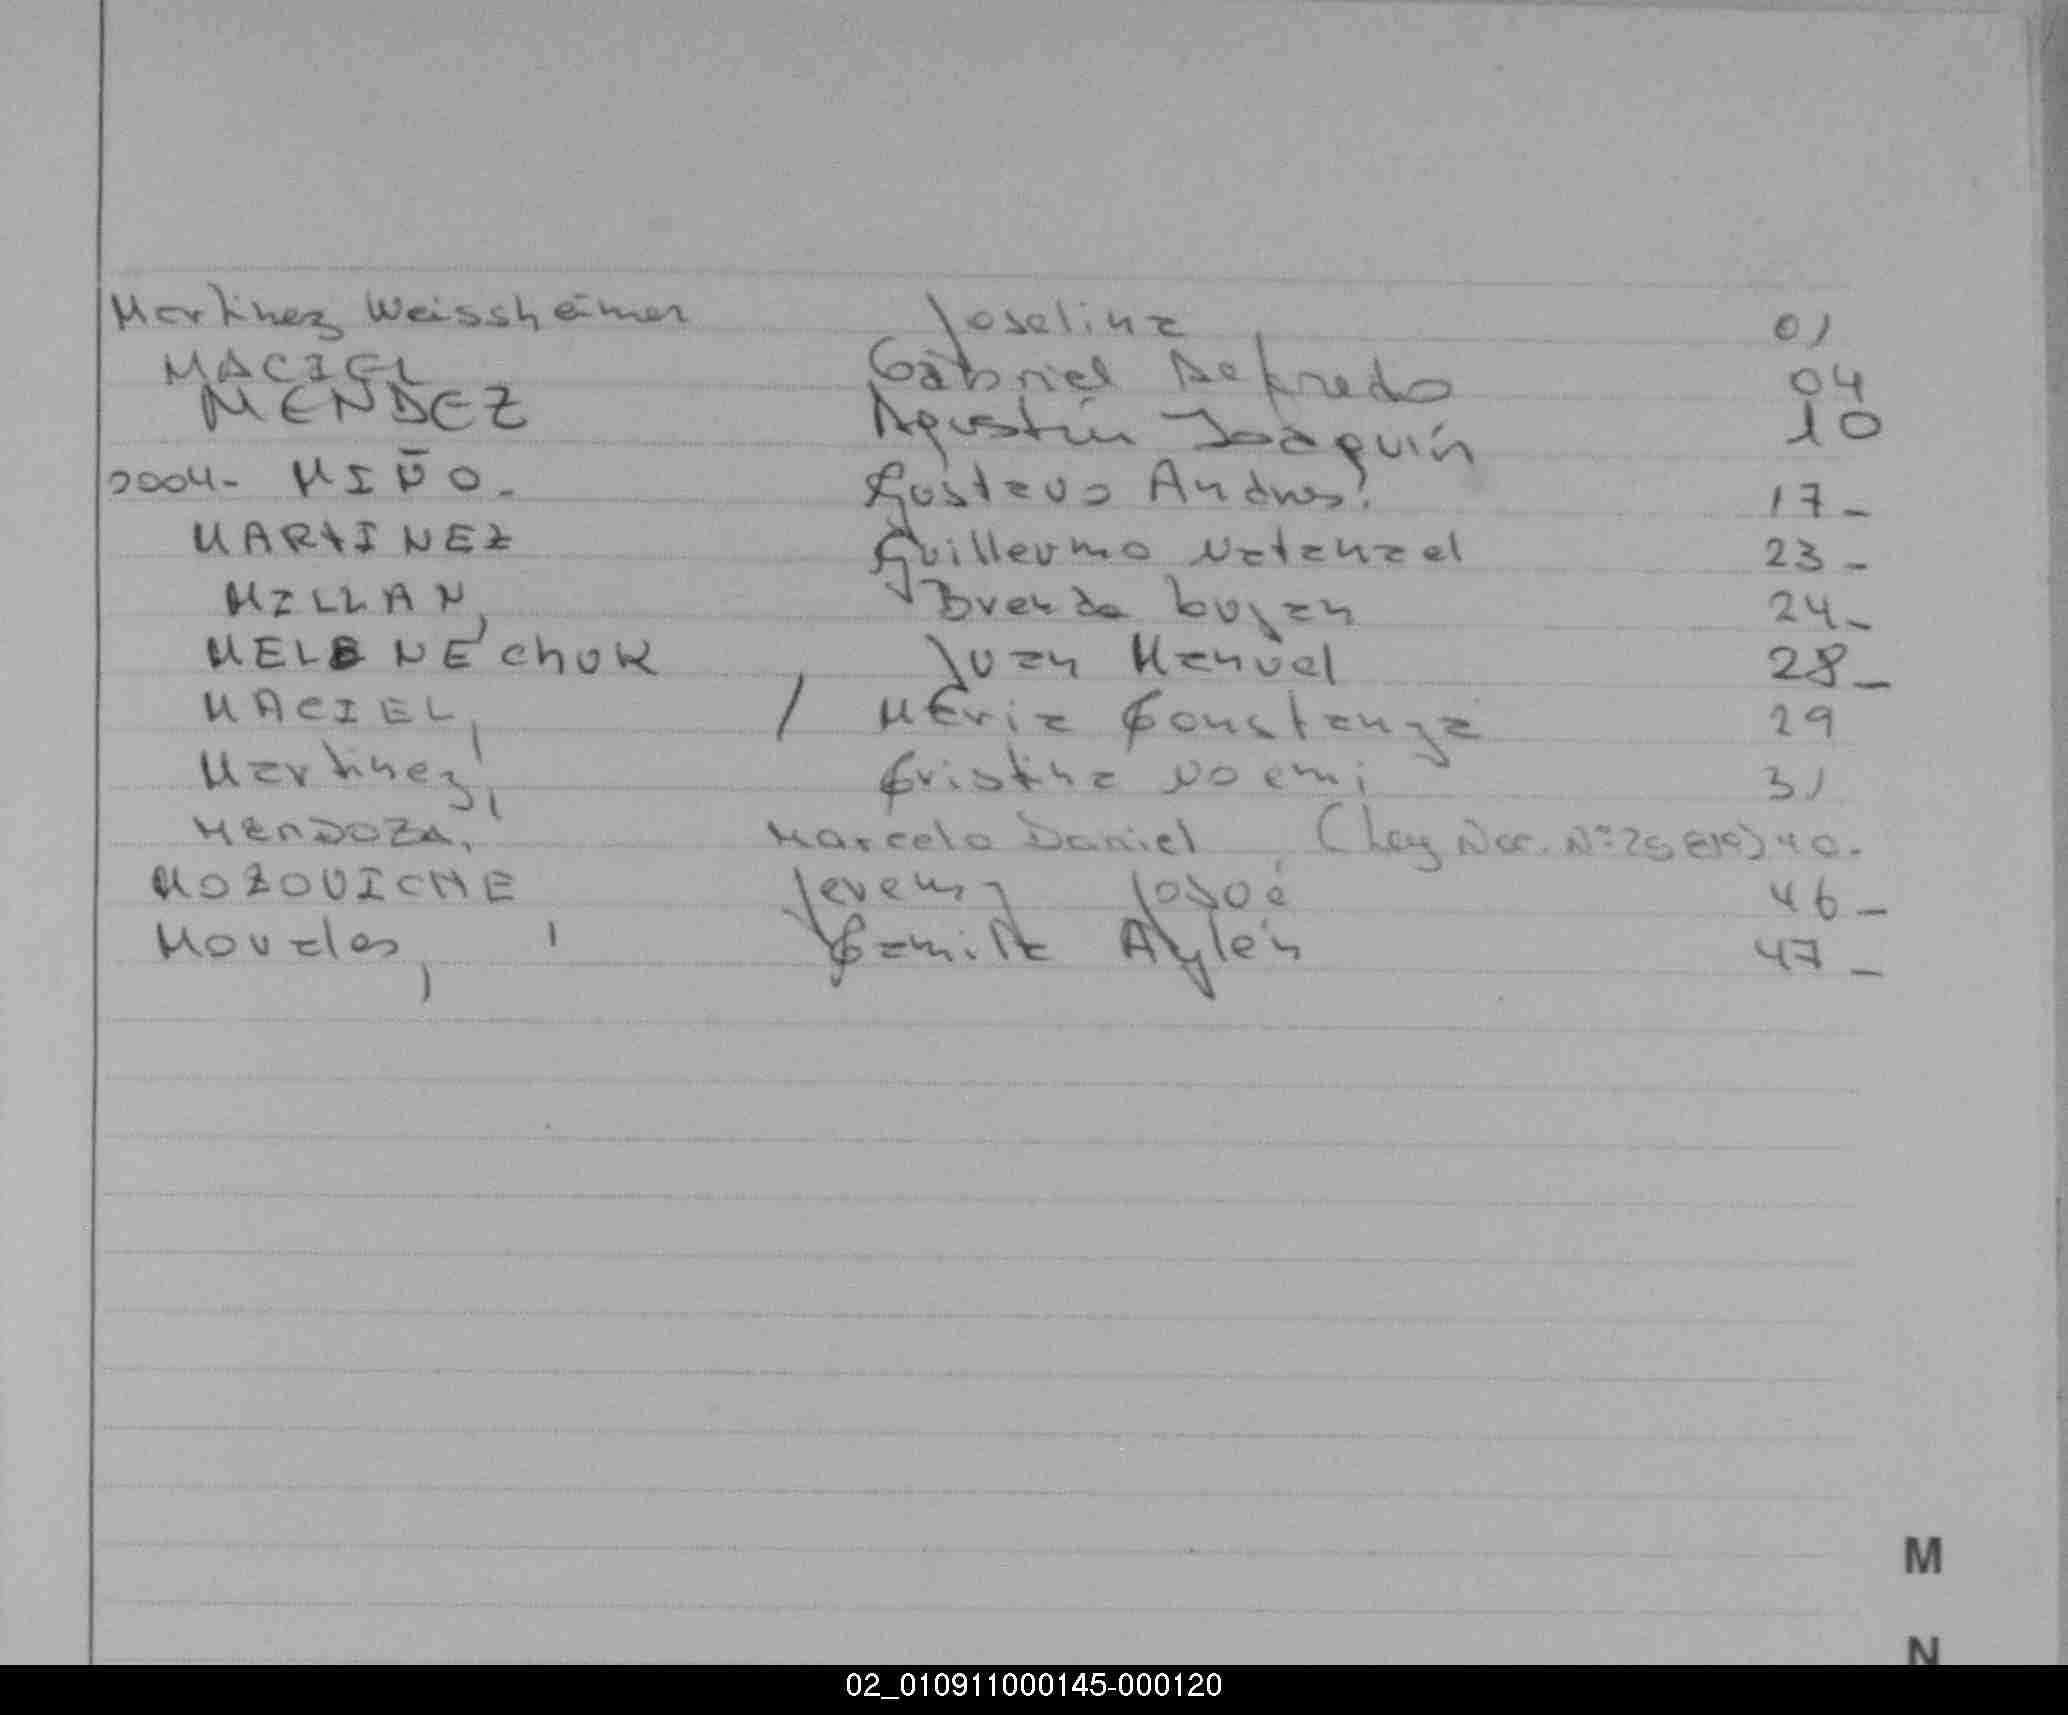 Martinez Weissheimer Joselina 01
MACIEL Gabriel Alfredo 04
MENDEZ Agustín Joaquín 10
2004- MIÑO. Gustavo Andres. 17-
MARTINEZ Guillermo Natanael 23-
MILLAN, Brenda Lujan 24-
MELENECHUK Juan Manuel 28-
MACIEL, / María Constanza 29
Martinez, Cristina Noemi 31
MENDOZA, Marcelo Daniel (Ley Nac. Nº 40.
MOZOVICHE Jeremy Josoé 46-
Morales, Camila Aylén 47-
M
N
02_010911000145-000120